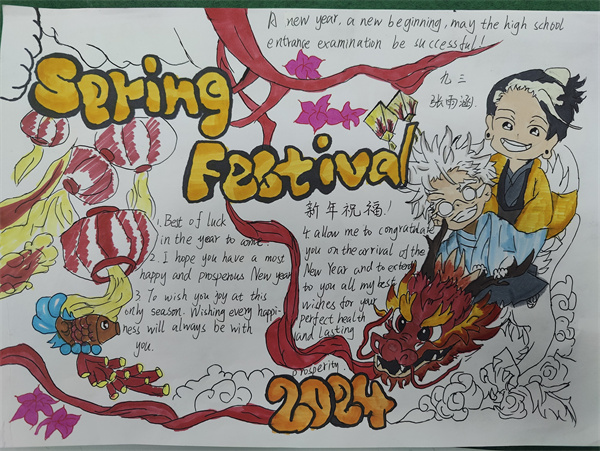 A new year, a new beginning, may the high school
entrance examination be successful!
九三
张雨涵
Spring
Festival
新年祝福!
1. Best of luck
in the year to come.
2. I hope you have a most
happy and prosperous New year
3 To wish you joy at this
only season. Wishing every happi-
ness will always be with
you.
4. allow me to congratulate
you on the arrival of the
New Year and to extend
to you all my best
wishes for your
perfect health
and lasting
prosperity.
2024